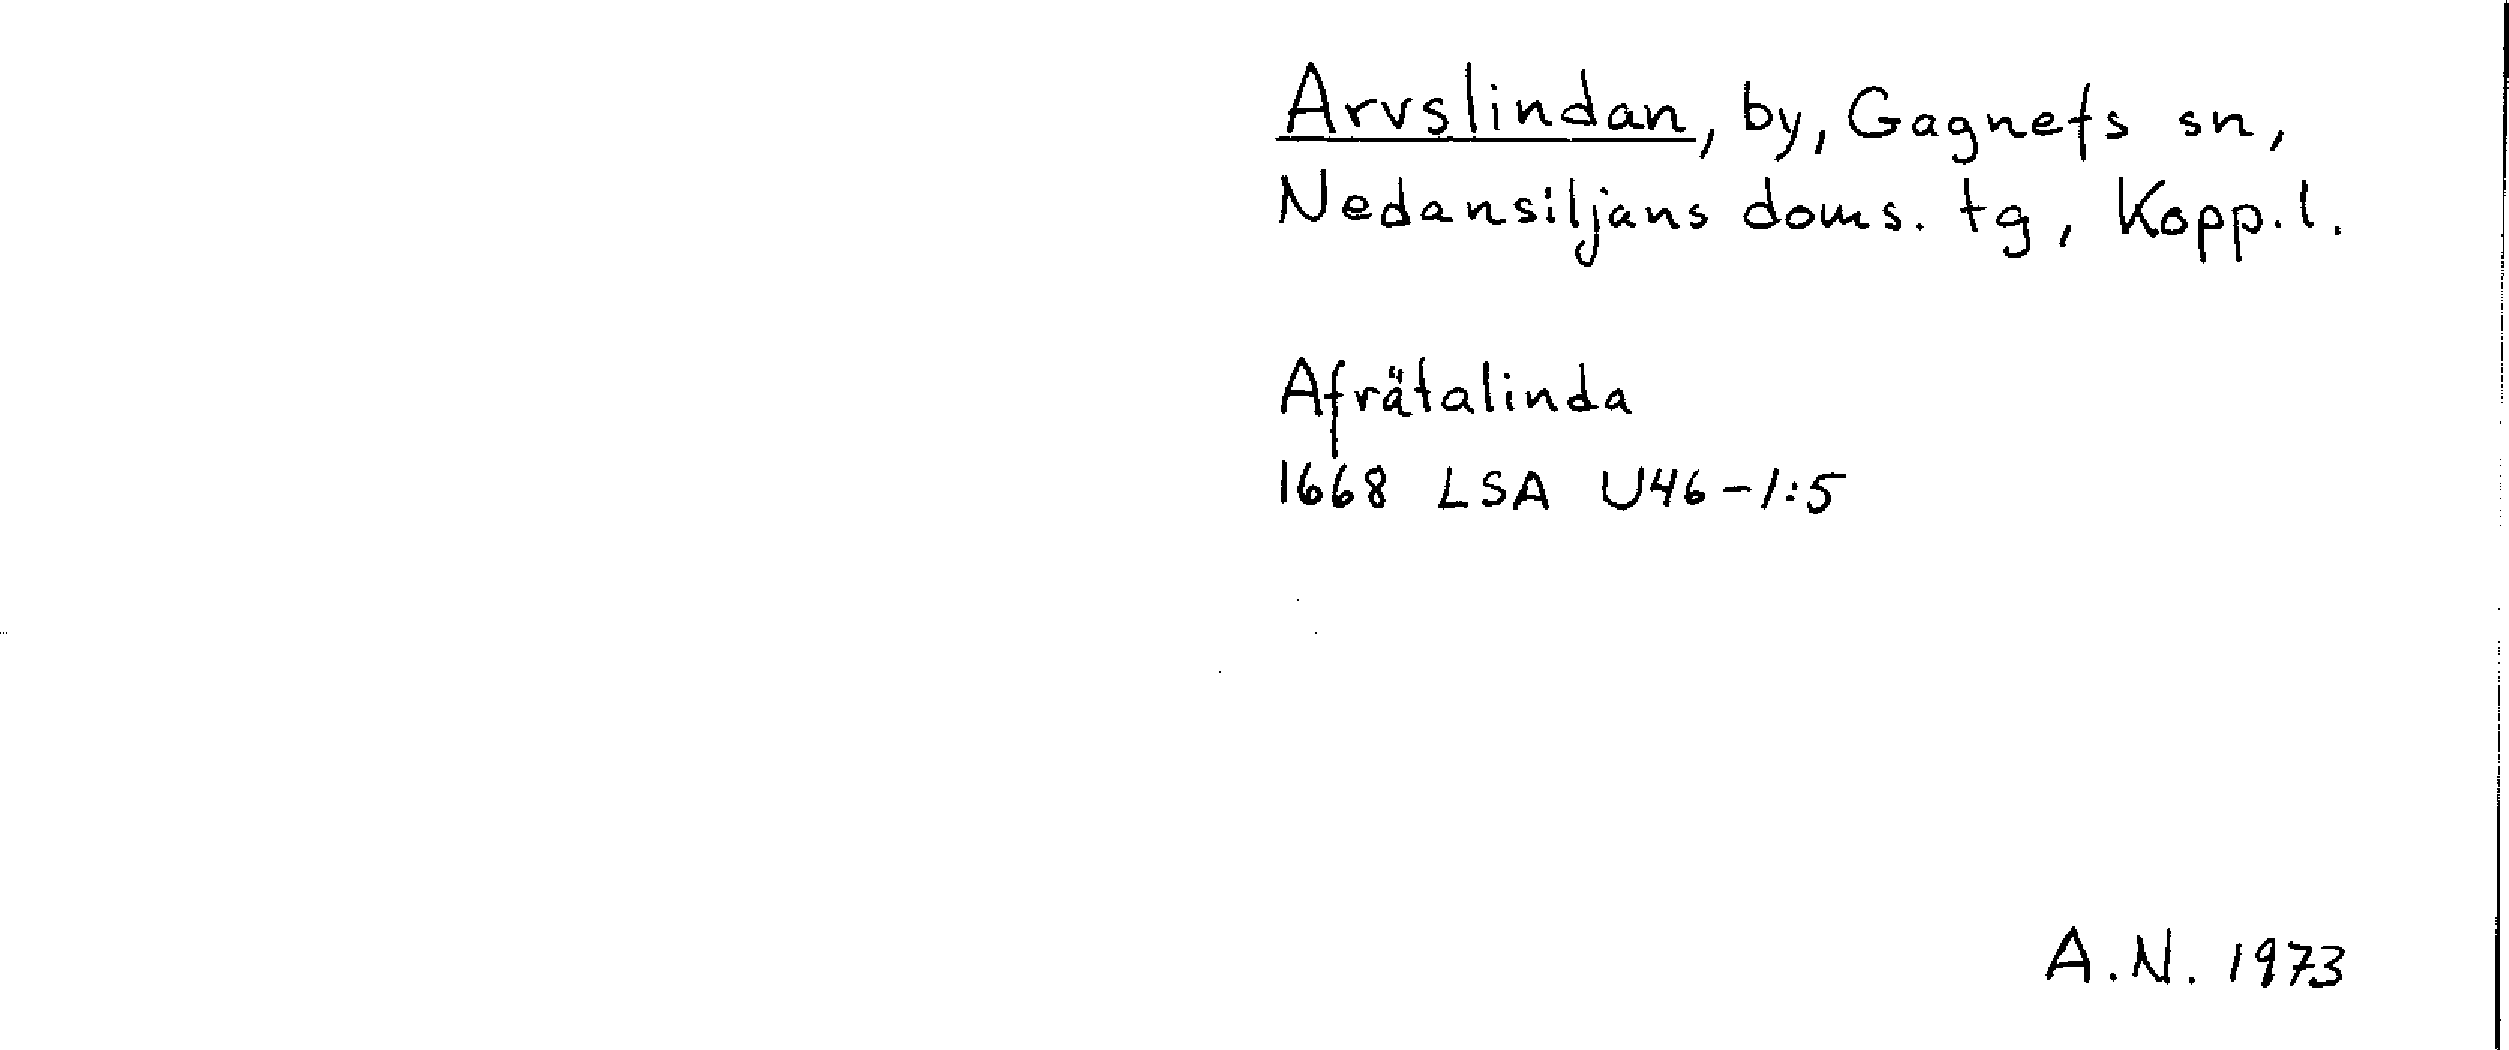 Arvslindan, by, Gagnefs sn,
Nedansiljans doms. tg, Kopp.l.
Afrätalinda
1668 LSA U46-1:5
A.N. 1973